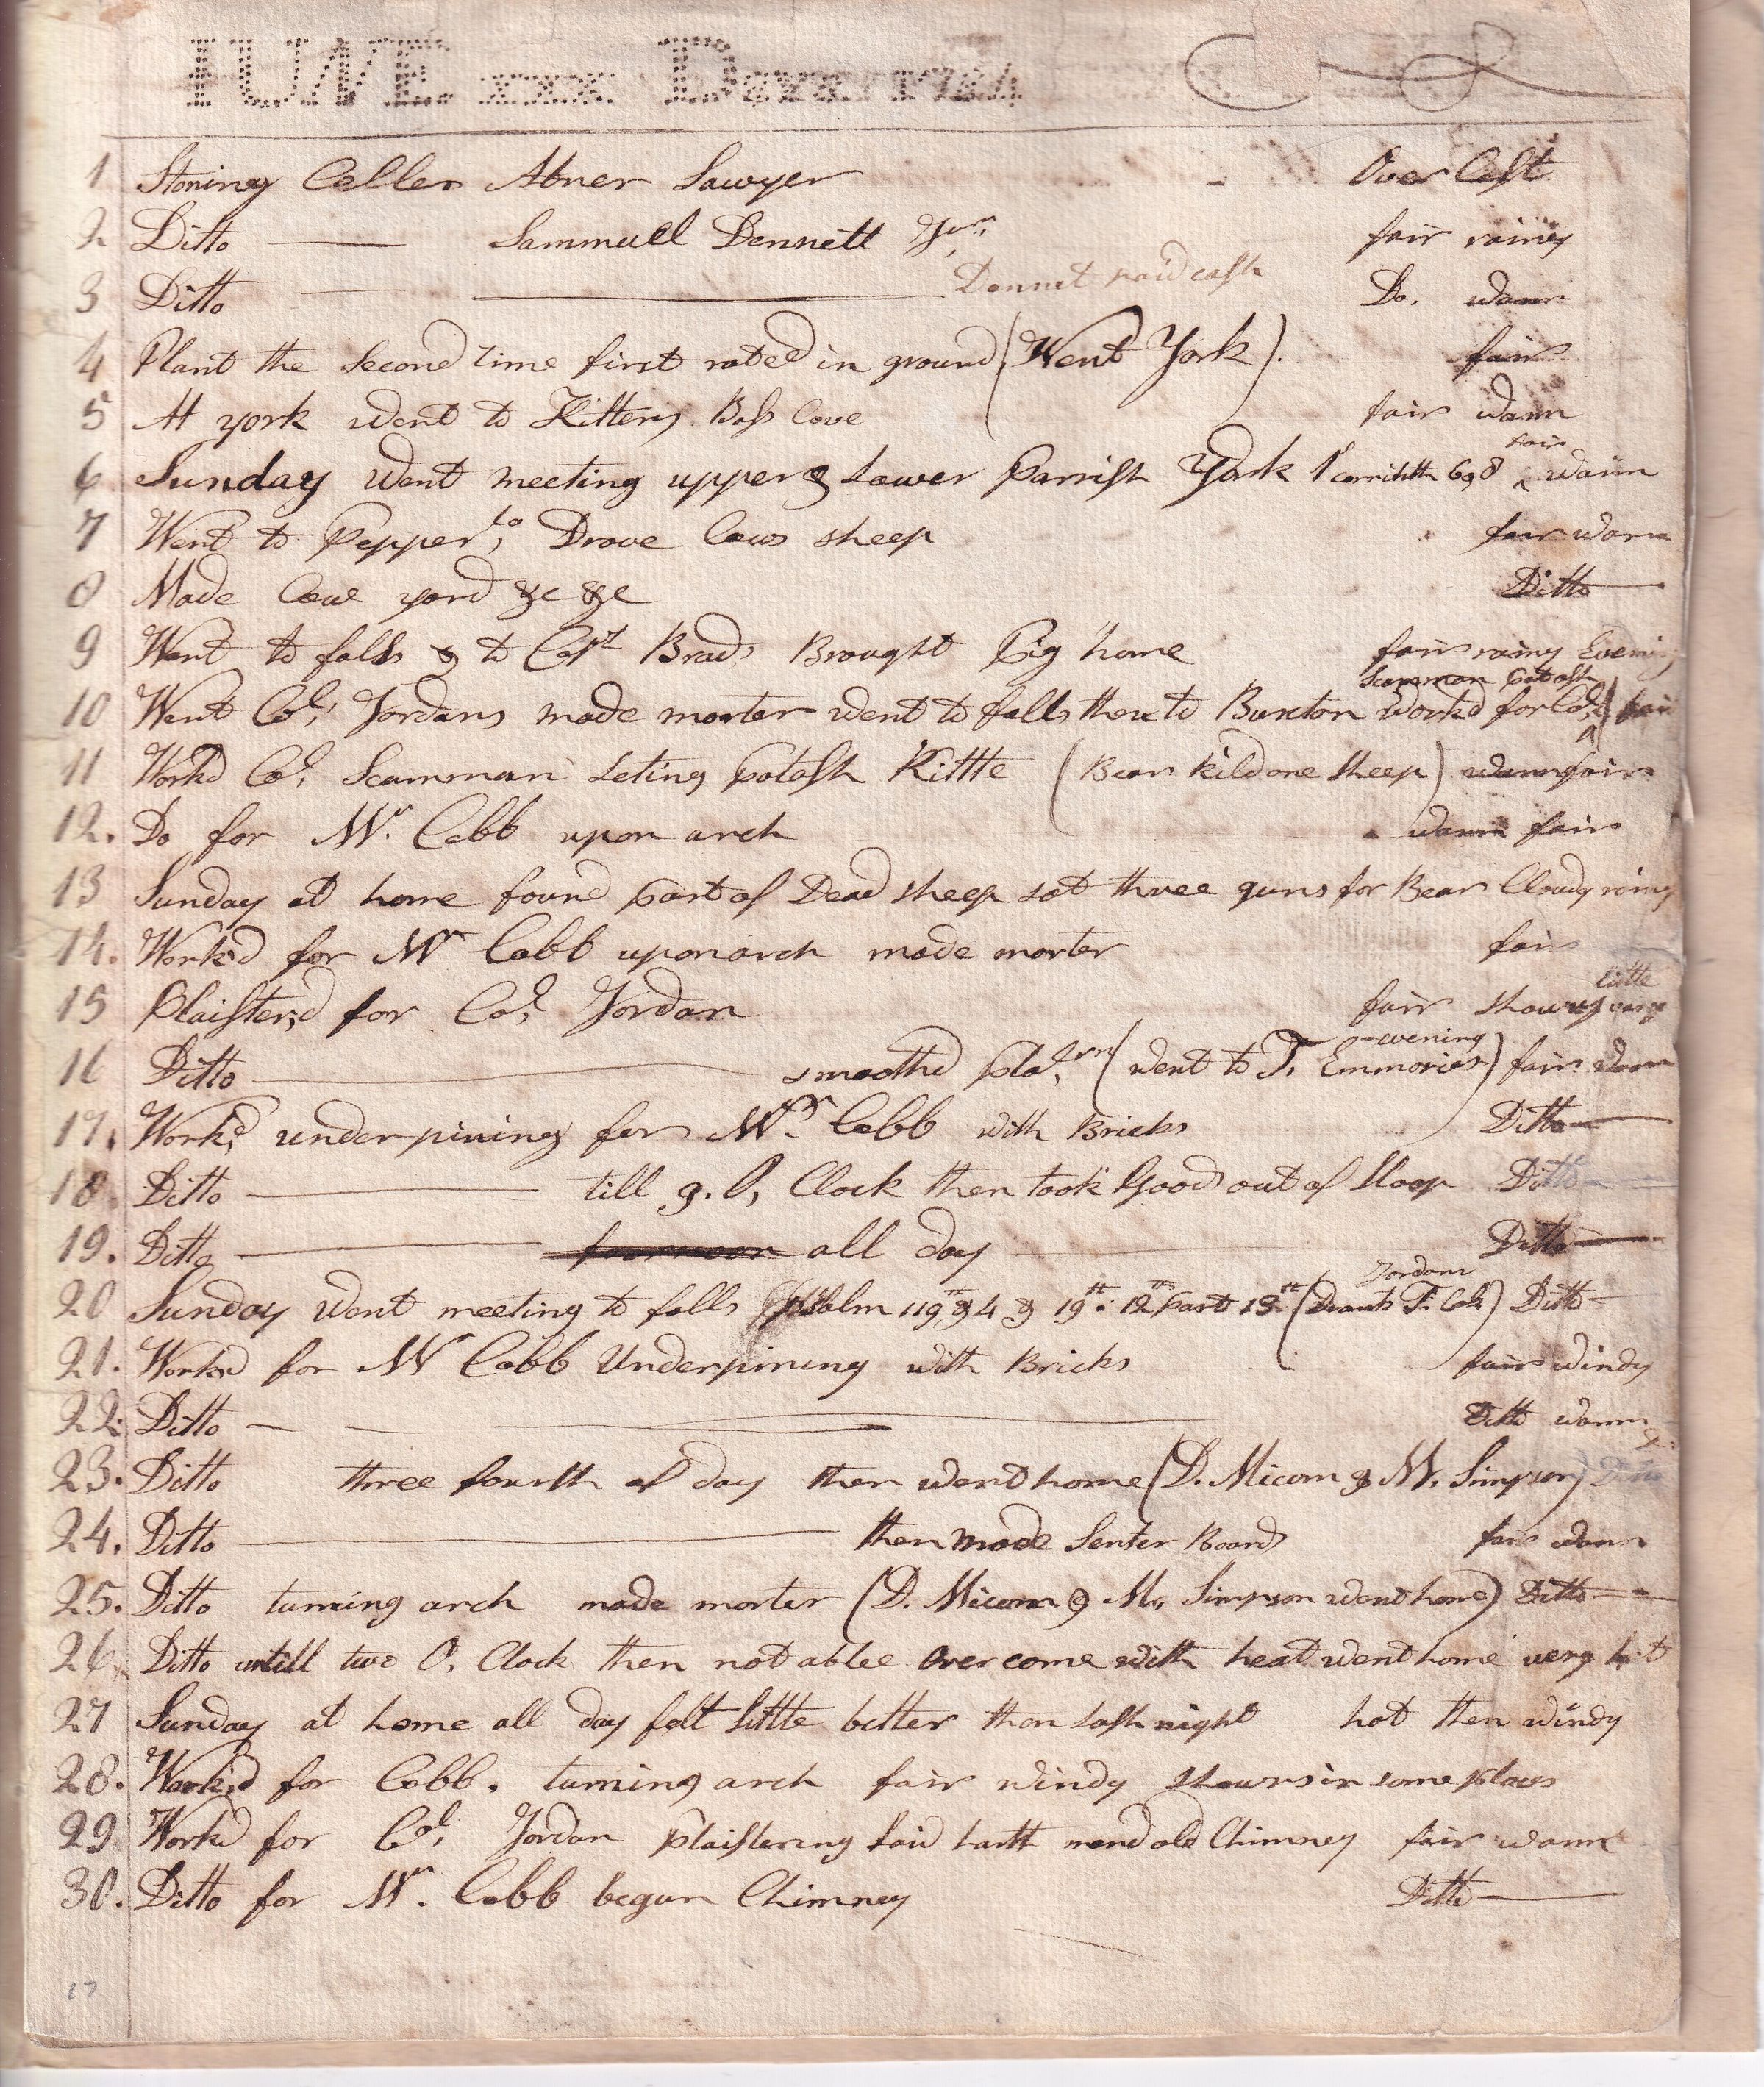 IUNE xxx Days 1784
1 Stoning Celler Abner Sawyer Over Cast
2 Ditto Sammuell Dennett Junr. fair rainy
3 Ditto Dennet paid cash Do. warm
4 Plant the Second time first roted in ground (Went York). fair
5 At york went to Kittery Bass Cove fair warm
6 Sunday Went meeting upper & Lower Parrish York 1 corrinth 6 & 8 fair warm
7 Went to Pepperlo, Drove Cows sheep fair warm
8 Made Cow yard &c &c Ditto
9 Went to falls & to Capt Brads, Brought Pig home fair rainy Evening
Scamman Potash
10 Went Col, Jordans made morter went to falls then to Buxton Workd for Col, fair
11 Workd Col, Scamman Seting Potash Kittle (Bear kild one Sheep) warm fair
12. Do for Mr. Cobb upon arch warm fair
13 Sunday at home found part of Dead sheep sot three guns for Bear Cloudy rainy
14. Workd for Mr Cobb upon arch made morter fair
little
15 Plaisterd for Col, Jordan fair showery
evening
16 Ditto smoothd (went to T. Emmories) fair warm
17. Workd, underpining for Mr. Cobb with Bricks Ditto
18. Ditto till 9. O, Clock then took Goods out of Sloop Ditto
19. Ditto foornoon all day Ditto
Jordam
20 Sunday Went meeting to falls Psalm 119th & 4 & 19th. 12th part 19th (Drank T. Col) Ditto
21. Workd for Mr Cobb Underpining with Bricks fair windy
22. Ditto Ditto warm
23. Ditto three fourth of day then went home (D. Micom & M. Simpson) Ditto
24. Ditto then made Senter Boards fair warm
25. Ditto turning arch made morter (D. Micom & M. Simpson went home) Ditto
26. Ditto untill two O, Clock then not ablee Over come with heat went home very hot
27 Sunday at home all day felt Little better than Last night hot then windy
28. Workd for Cobb. turning arch fair windy Showrs in some places
29 Workd for Col, Jordan plaistering Laid harth mend old Chimney fair warm
30. Ditto for Mr. Cobb begun Chimney Ditto
17